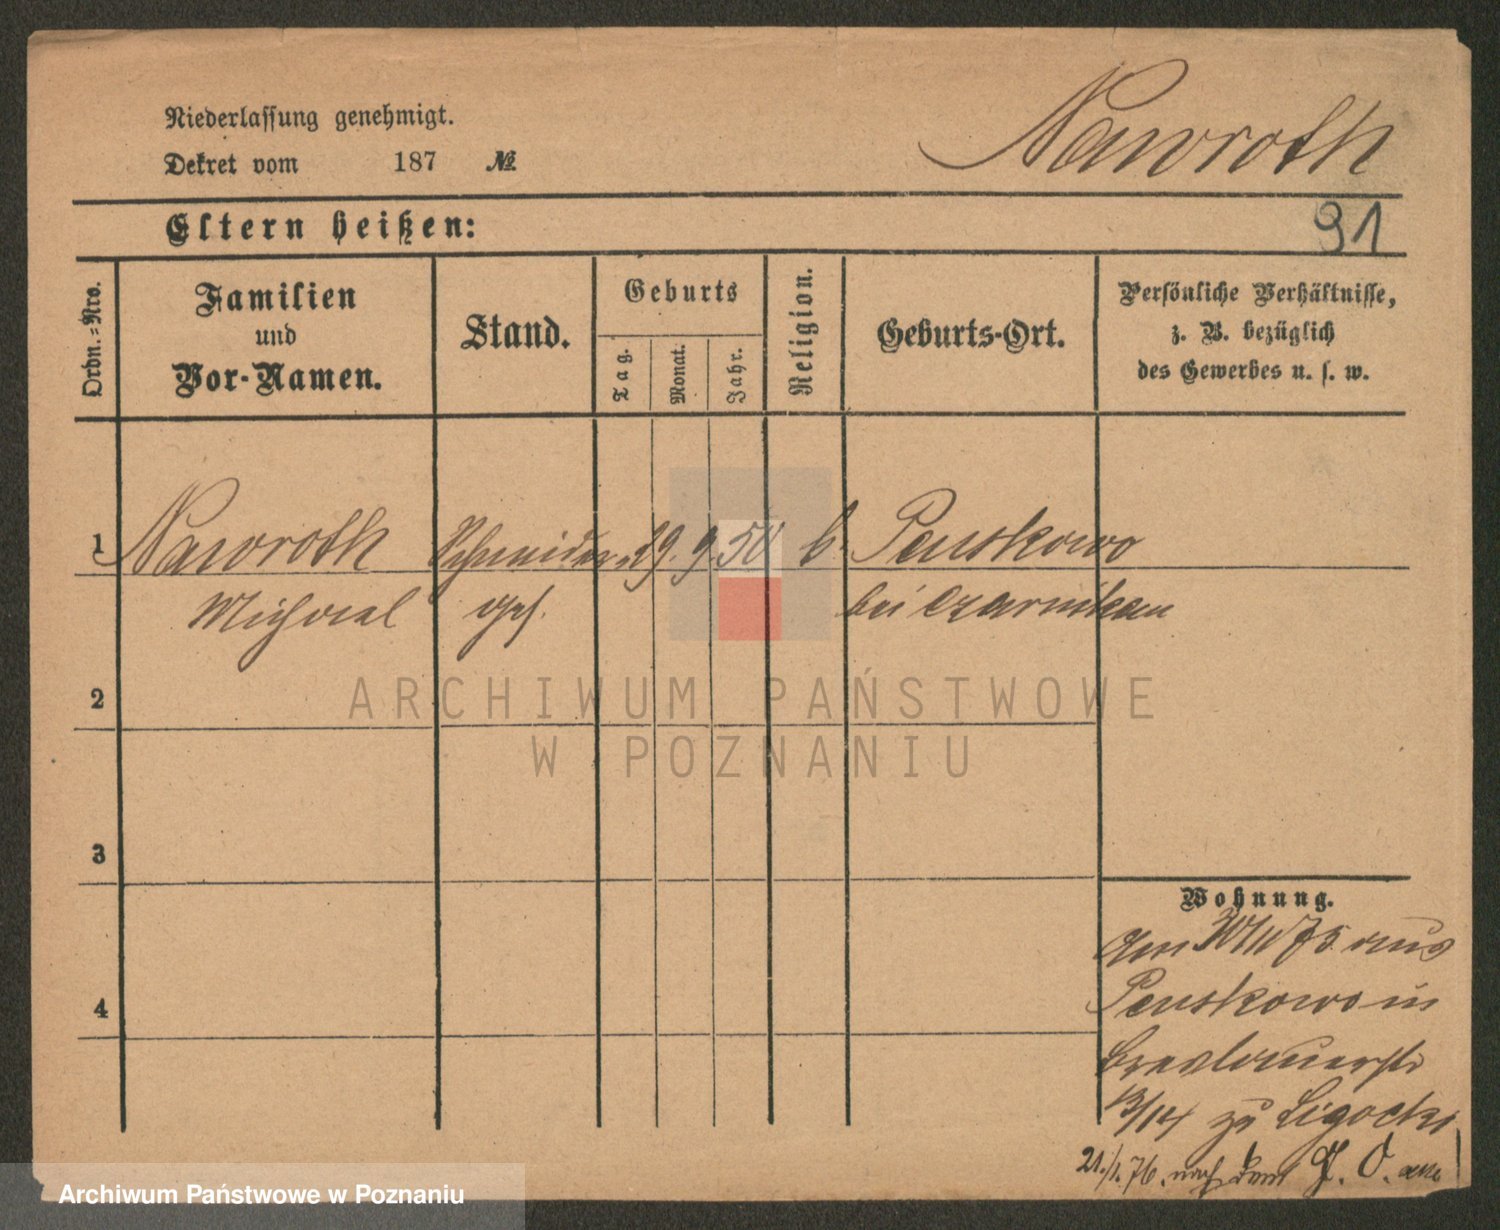 Niederlassung genehmigt.
Dekret vom 187 №
Nawroth
Eltern heißen:
91
Ordn.=Nro.
Familien
und
Vor-Namen.
Stand.
Geburts
Tag.
Monat.
Jahr.
Religion.
Geburts-Ort.
Persönliche Verhältnisse,
z. B. bezüglich
des Gewerbes u. s. w.
1 Nawroth Schneider 29. 9. 50 k. Penskowo
Michael ges. bei Czarnikau
2
ARCHIWUM PAŃSTWOWE
W POZNANIU
3
Wohnung.
Am 75 aus
Penskowo in
Breslauerstr
13/14 zu Ligocki
4
21./1. 76. nach dem P. O.
Archiwum Państwowe w Poznaniu